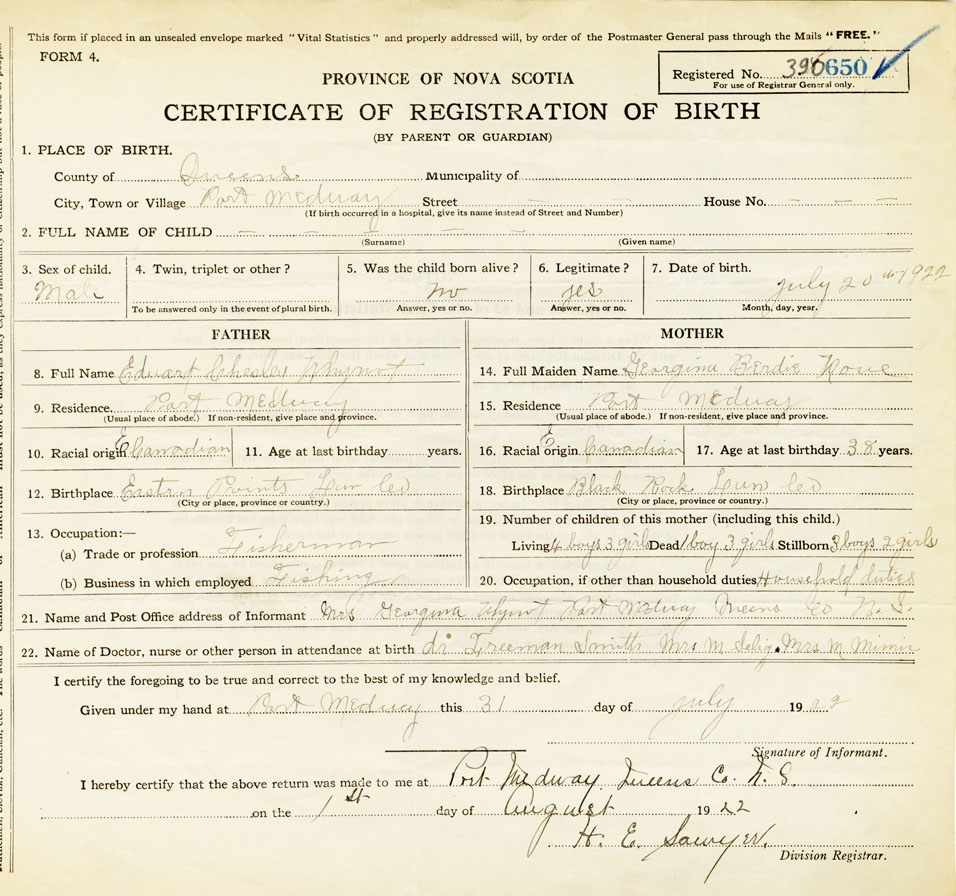 This form if placed in an unsealed envelope marked "Vital Statistics" and properly addressed will, by order of the Postmaster General pass through the Mails "FREE."
FORM 4.
Registered No. 396650
For use of Registrar General only.
PROVINCE OF NOVA SCOTIA
CERTIFICATE OF REGISTRATION OF BIRTH
(BY PARENT OR GUARDIAN)
1. PLACE OF BIRTH.
County of Queens Municipality of
City, Town or Village Port Medway Street — — House No. — — —
(If birth occurred in a hospital, give its name instead of Street and Number)
2. FULL NAME OF CHILD — — — — —
(Surname) (Given name)
3. Sex of child. 4. Twin, triplet or other? 5. Was the child born alive? 6. Legitimate? 7. Date of birth.
Male no yes July 20 1922
To be answered only in the event of plural birth. Answer, yes or no. Answer, yes or no. Month, day, year.
FATHER
8. Full Name Edwart Chesley Whynot
9. Residence. Port Medway
(Usual place of abode.) If non-resident, give place and province.
10. Racial origin E Canadian 11. Age at last birthday years.
12. Birthplace Eastern Points Lun Co
(City or place, province or country.)
13. Occupation:—
(a) Trade or profession Fisherman
(b) Business in which employed Fishing
MOTHER
14. Full Maiden Name Georgina Berdie
15. Residence Port Medway
(Usual place of abode.) If non-resident, give place and province.
16. Racial origin E Canadian 17. Age at last birthday 38 years.
18. Birthplace Black Rock Lun Co
(City or place, province or country.)
19. Number of children of this mother (including this child.)
Living 4 boys 3 girls Dead 1 boy 3 girls Stillborn 3 boys 2 girls
20. Occupation, if other than household duties Household duties
21. Name and Post Office address of Informant Mrs Georgina Whynot Port Medway Queens Co N.S.
22. Name of Doctor, nurse or other person in attendance at birth dr Freeman Smith Mrs M Selig. Mrs M
I certify the foregoing to be true and correct to the best of my knowledge and belief.
Given under my hand at Port Medway this 31 day of July 1922
Signature of Informant.
I hereby certify that the above return was made to me at Port Medway Queens Co. N.S.
on the 1st day of August 1922
H. E. Sawyer.
Division Registrar.